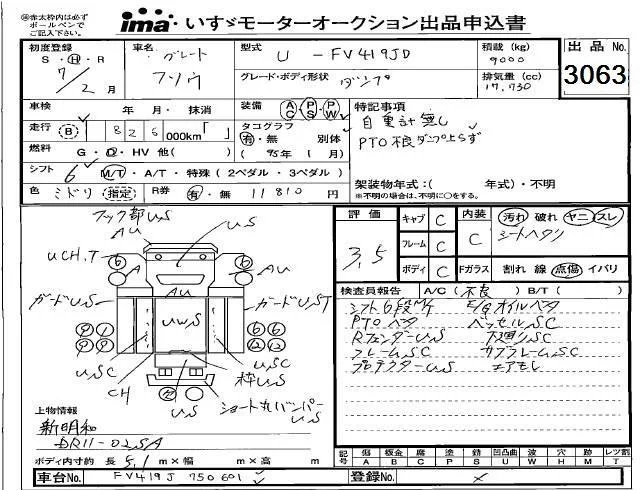 ㊟赤太枠内は必ず
ボールペンで
ご記入下さい。
ima いすゞモーターオークション出品申込書
初度登録
S・H・R
7/2月
車名
グレート
フソウ
型式 U - FV419JD
グレード・ボディ形状 ダンプ
積載(kg)
9000
排気量(cc)
17,730
出品No.
3063
車検 年 月・抹消
走行(B) 826,000km「 」
燃料 G・D・HV 他( )
シフト 6 M/T・A/T・特殊(2ペダル・3ペダル)
色 ミドリ (指定) R券 有・無 11810 円
装備 AC・PS・PW
タコグラフ
有・無 別体
(95年 1月)
特記事項
自重計無し
PTO不良ダンプ上らず
架装物年式:( 年式)・不明
※不明の場合は、不明に○をする。
フック部U.S
AU
U.S
AU
UCH.T
6
6
A
A
AU
AU
ガードU.S
ガードU.S T
UWS
USC
USC
CH
枠U.S
U.S
ショート丸バンパー
U.S
上物情報
新明和
DR11-02SA
ボディ内寸約 長 5.1 m×幅 m×高 m
評価
3.5
キャブ C
フレーム C
ボディ C
内装 C
汚れ 破れ ヤニ スレ
シートヘタリ
Fガラス 割れ 線 点傷 イバリ
検査員報告 A/C(不良) B/T( )
シフト6段M/T E/gオイルベタ
PTOベタ ベッセルSC
RフェンダーU.S 下廻りSC
フレームSC サブフレームSC
プロテクターU.S エアモレ
記号 傷A 板金B 腐C 塗P 錆S 凹凸曲U 波W 穴H 跡M レンズ割T
車台No. FV419J 750601
登録No. ×